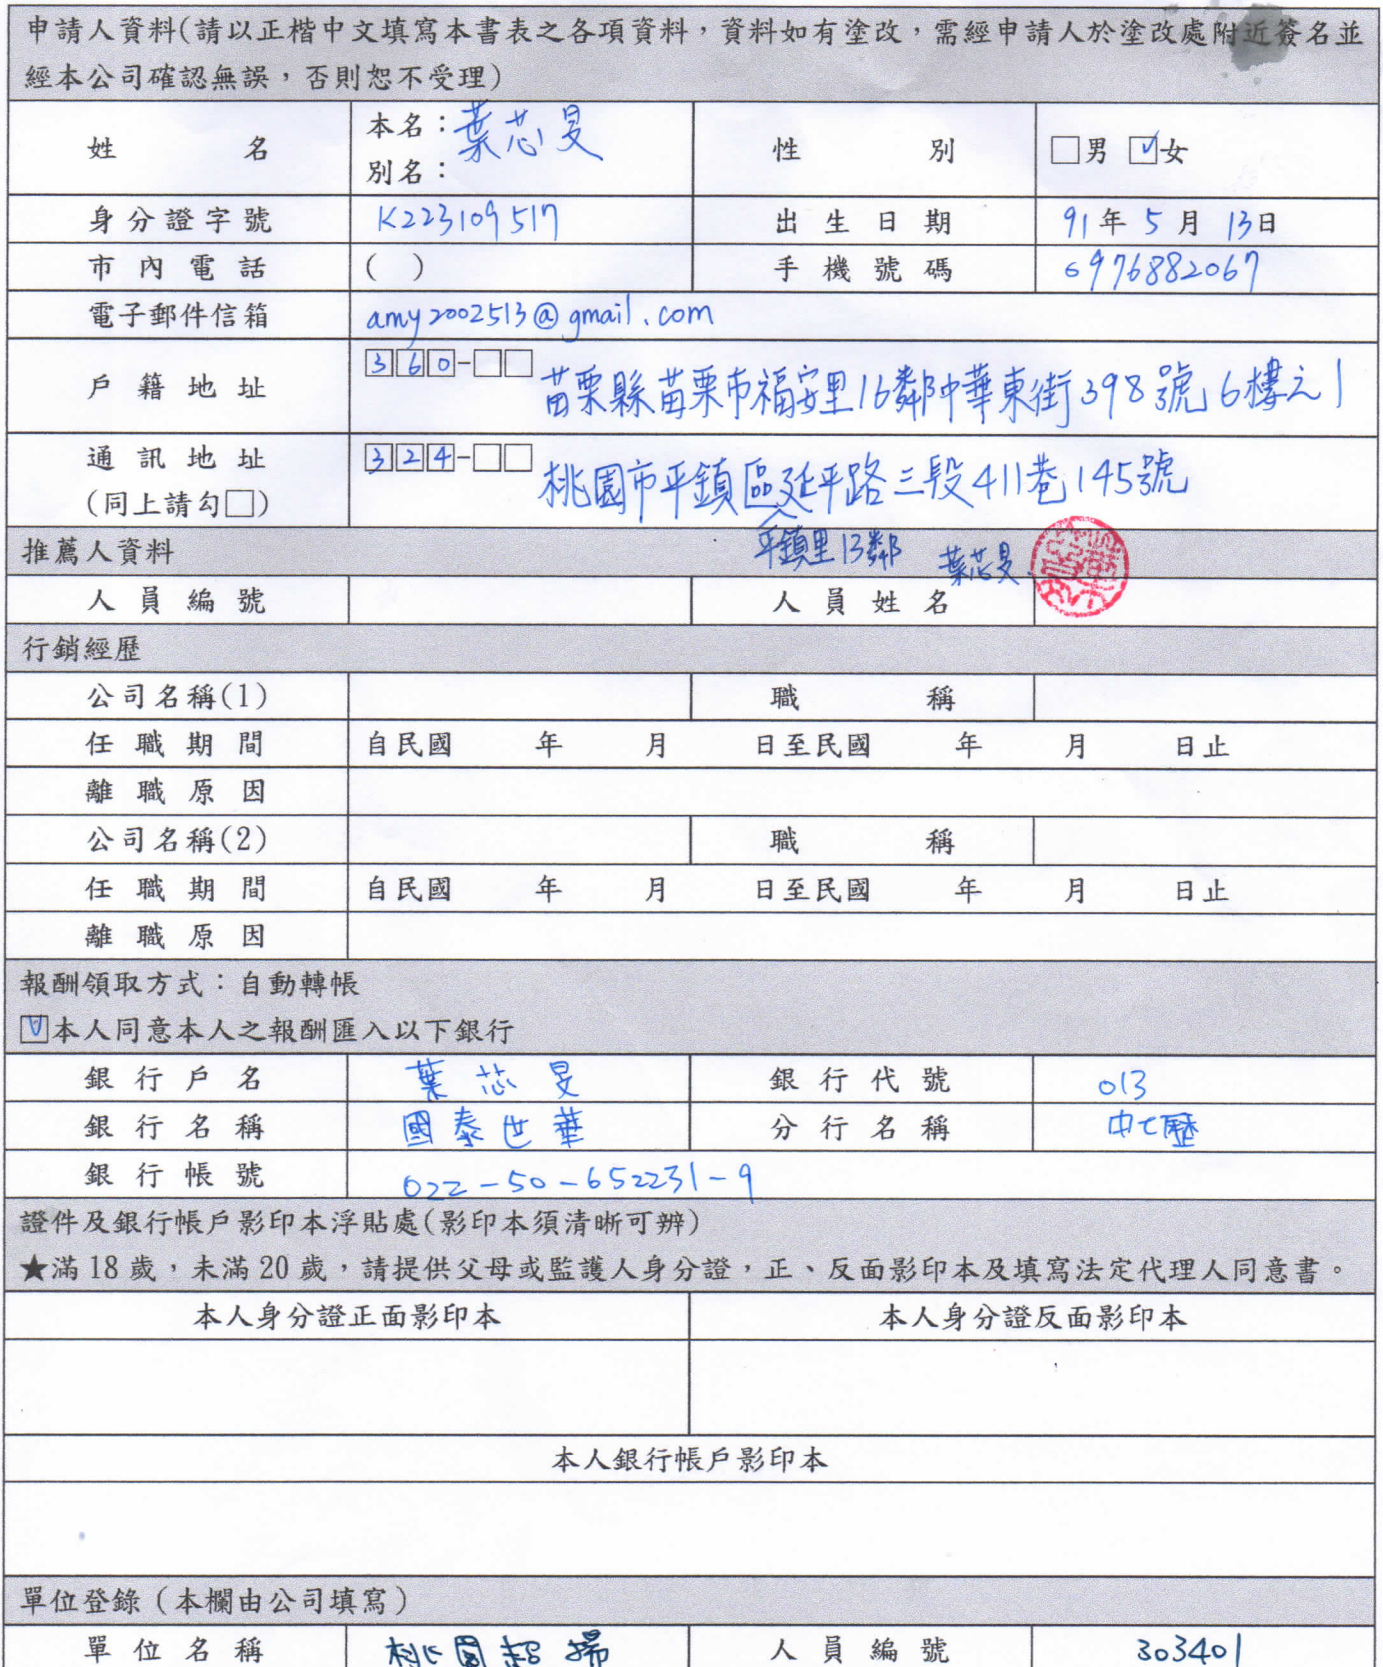 申請人資料(請以正楷中文填寫本書表之各項資料，資料如有塗改，需經申請人於塗改處附近簽名並
經本公司確認無誤，否則恕不受理)
姓 名 本名：葉芯旻 別名： 性 別 □男 ☑女
身分證字號 K223109517 出生日期 91年5月13日
市內電話 ( ) 手機號碼 0976882067
電子郵件信箱 amy2002513@gmail.com
戶籍地址 360-□□ 苗栗縣苗栗市福安里16鄰中華東街398號6樓之1
通訊地址 324-□□ 桃園市平鎮區延平路三段411巷145號
(同上請勾□)
平鎮里13鄰 葉芯旻
推薦人資料
人員編號 人員姓名
行銷經歷
公司名稱(1) 職 稱
任職期間 自民國 年 月 日至民國 年 月 日止
離職原因
公司名稱(2) 職 稱
任職期間 自民國 年 月 日至民國 年 月 日止
離職原因
報酬領取方式：自動轉帳
☑本人同意本人之報酬匯入以下銀行
銀行戶名 葉芯旻 銀行代號 013
銀行名稱 國泰世華 分行名稱 中壢
銀行帳號 022-50-652231-9
證件及銀行帳戶影印本浮貼處(影印本須清晰可辨)
★滿18歲，未滿20歲，請提供父母或監護人身分證，正、反面影印本及填寫法定代理人同意書。
本人身分證正面影印本 本人身分證反面影印本
本人銀行帳戶影印本
單位登錄（本欄由公司填寫）
單位名稱 桃園 人員編號 303401